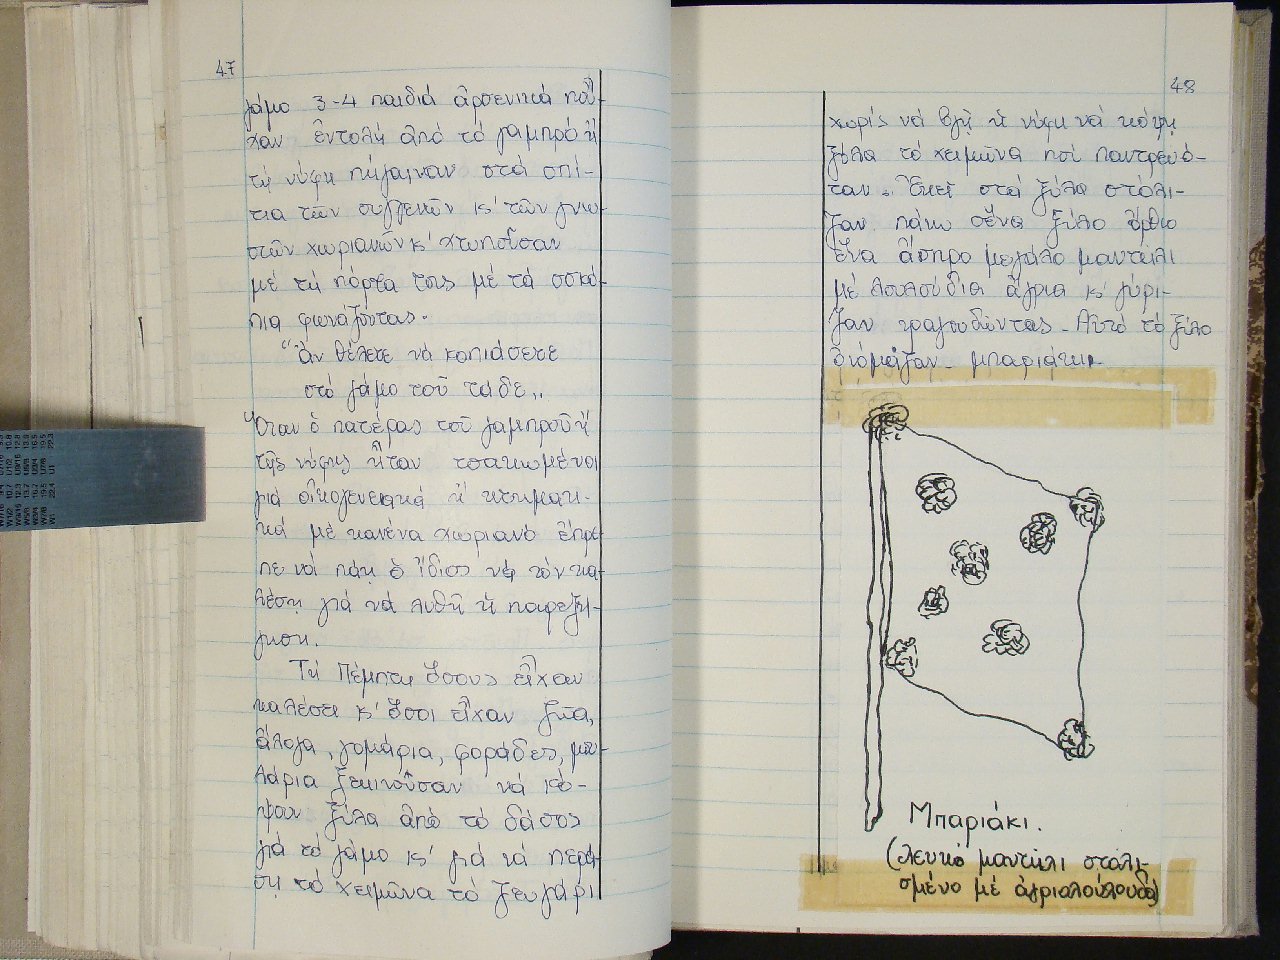 47
γάμο 3-4 παιδιά ἀρσενικά ποὖ-
χαν ἐντολή ἀπό τό γαμπρό ἤ
τή νύφη πήγαιναν στά σπί-
τια τῶν συγγενῶν κ' τῶν γνω-
στῶν χωριανῶν κ' χτυποῦσαν
μέ τή πόρτα τους μέ τά
πια φωνάζοντας.
"Ἄν θέλετε νά κοπιάσετε
στό γάμο τοῦ τάδε„
Ὅταν ὁ πατέρας τοῦ γαμπροῦ ἤ
τῆς νύφης ἦταν τσακωμένοι
γιά οἰκογενειακά ἤ κτηματι-
κά μέ κανένα χωριανό ἔπρε-
πε νά πάῃ ὁ ἴδιος νά τόν κα-
λέσῃ γιά νά λυθῆ ἡ παρεξή-
γηση.
Τή Πέμπτη ὅσους εἶχαν
καλέσει κ' ὅσοι εἶχαν ζῶα,
ἄλογα, γομάρια, φοράδες, μου-
λάρια ξεκινοῦσαν νά κό-
ψουν ξύλα ἀπό τό δάσος
γιά τό γάμο κ' γιά νά περά-
σῃ τό χειμῶνα τό ζευγάρι
48
χωρίς νά βγῆ ἡ νύφη νά κόψῃ
ξύλα τό χειμῶνα πού παντρευό-
ταν. Ἐκεῖ στά ξύλα στόλι-
ζαν πάνω σἔνα ξύλο ὄρθιο
ἕνα ἄσπρο μεγάλο μαντήλι
μέ λουλούδια ἄγρια κ' γύρι-
ζαν τραγουδώντας. Αὐτό τό ξύλο
ὀνόμαζαν μπαριάκι.
Μπαριάκι.
(λευκό μαντήλι στολι-
σμένο μέ ἀγριολούλουδα)